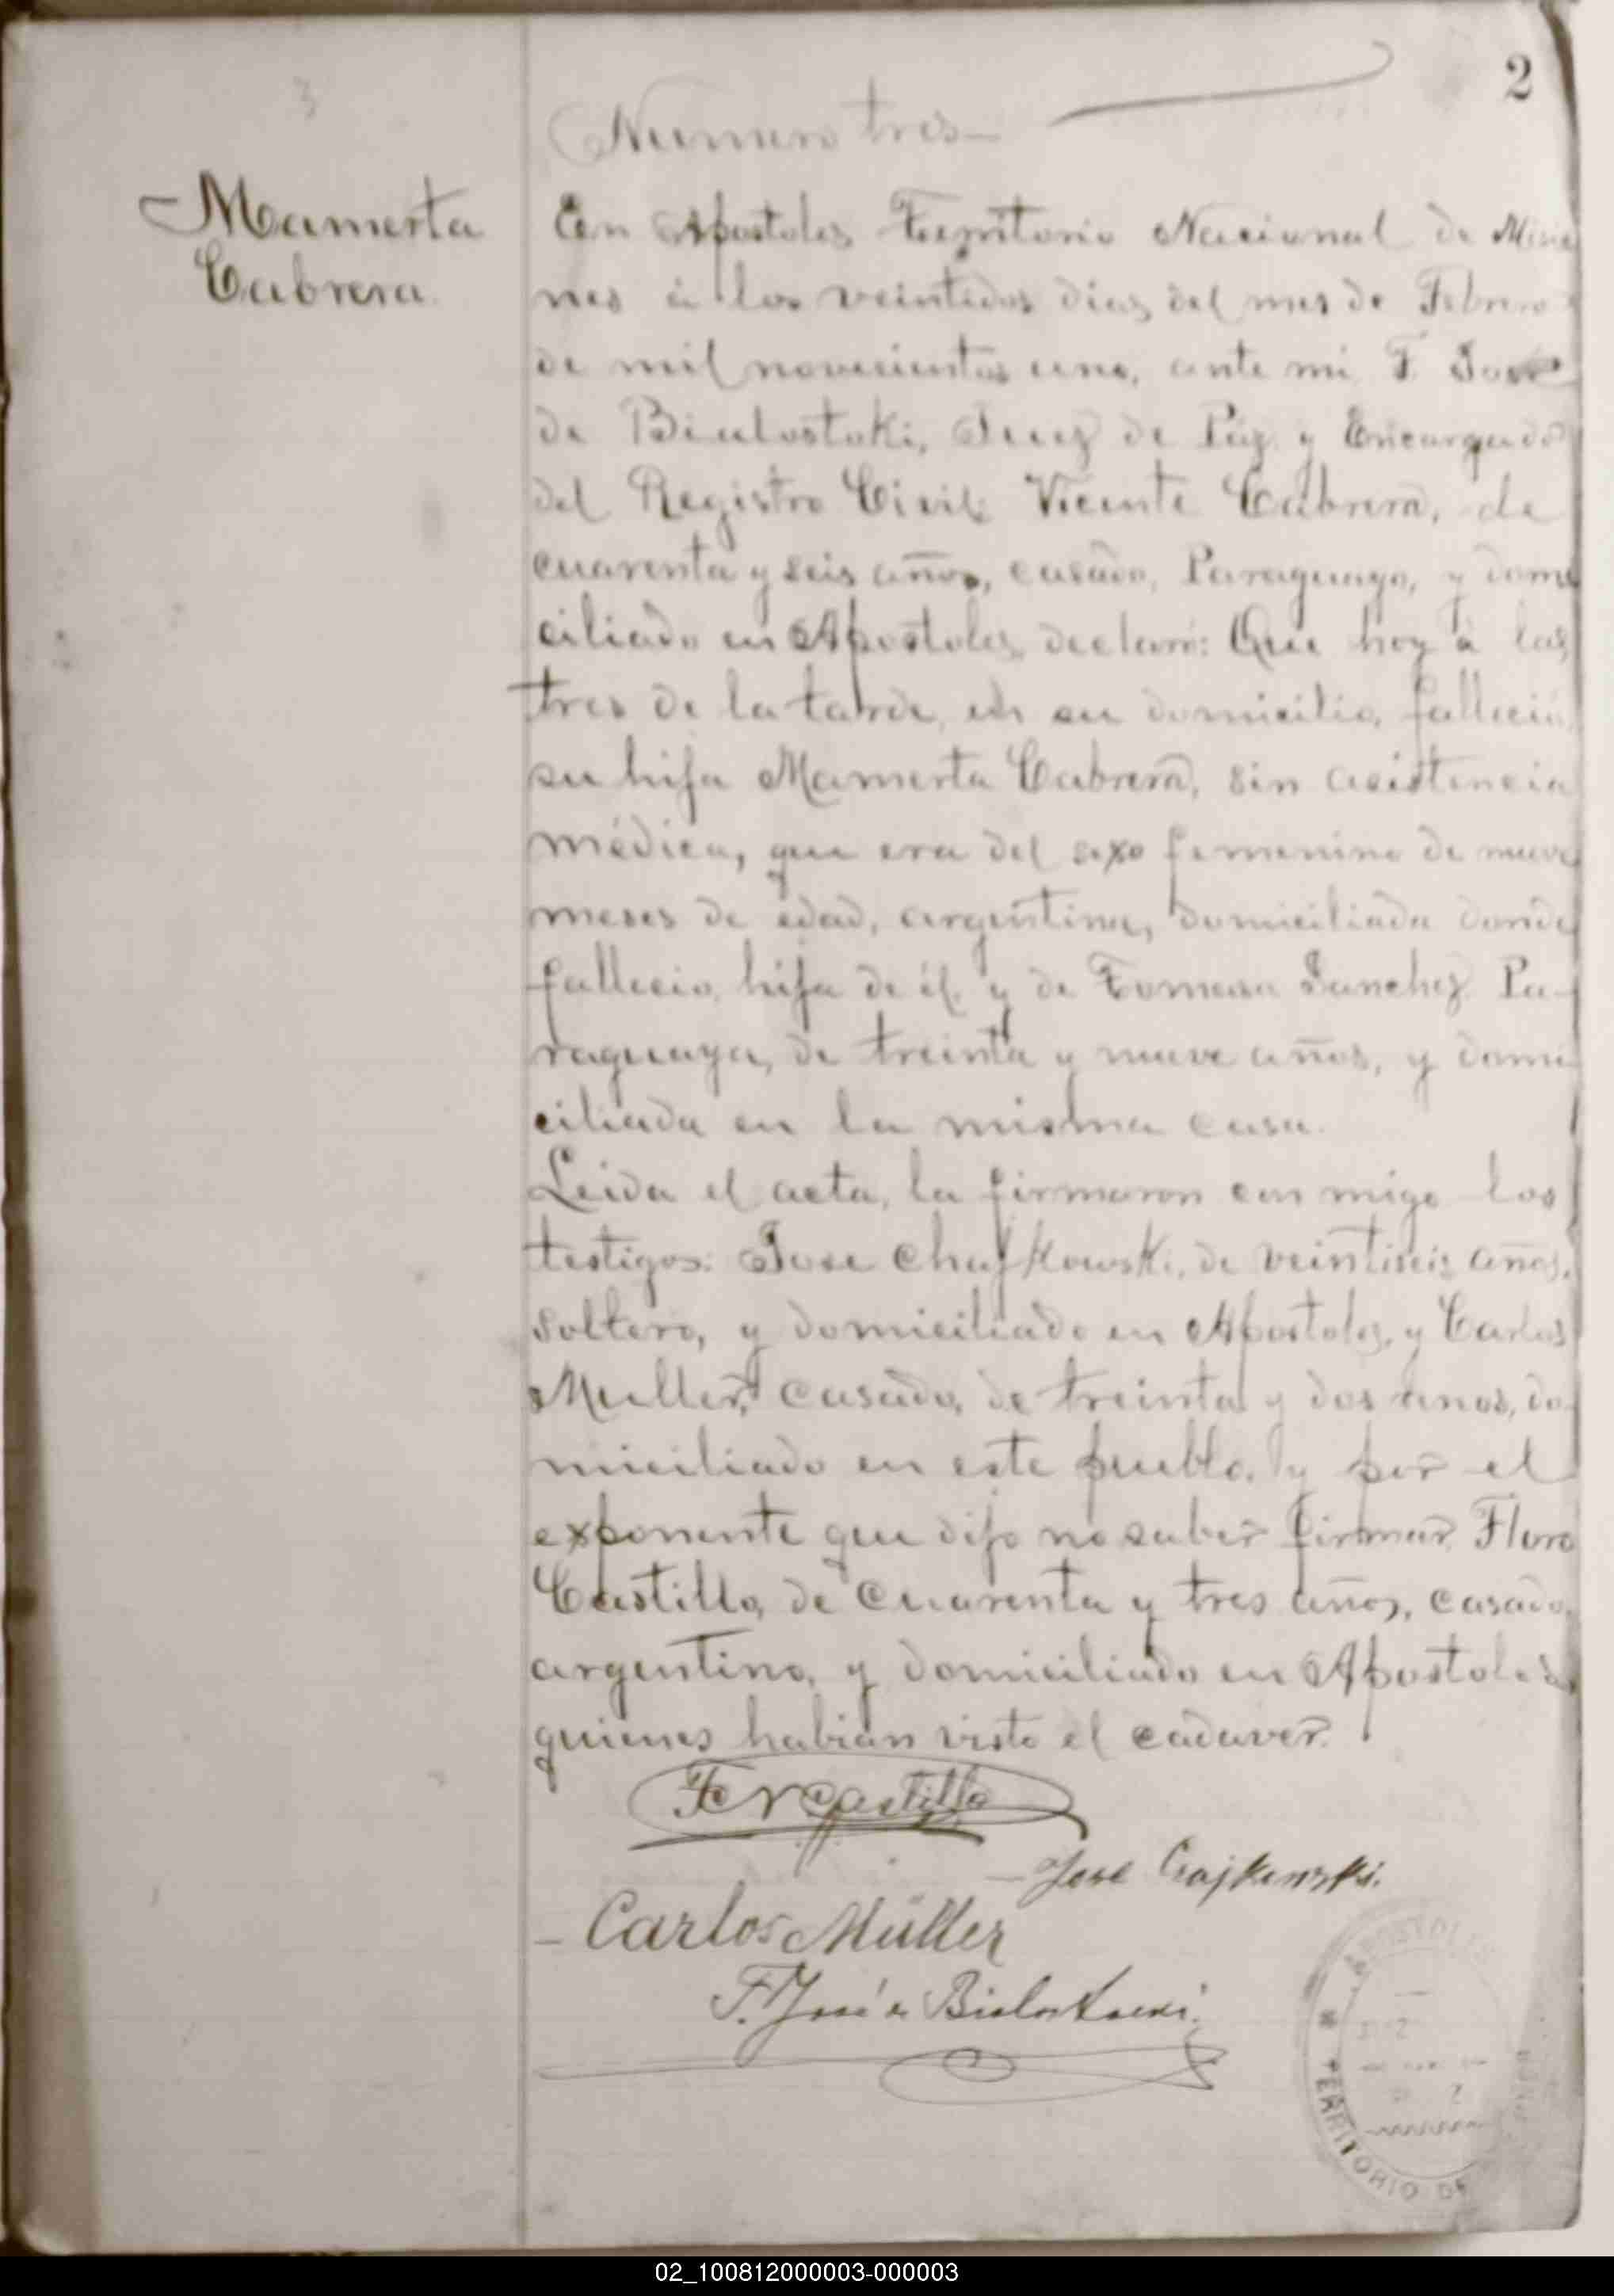 2
3
Numero tres
Mamerta
Cabrera
En Apostoles Territorio Nacional de Misio
nes á los veintidos dias del mes de Febrero
de mil novecientos uno, ante mi F. José
de Bialostoki, Juez de Paz y Encargado
del Registro Civil: Vicente Cabrera, de
cuarenta y seis años, casado, Paraguayo, y domi
ciliado en Apostoles, declaró: Que hoy á las
tres de la tarde, en su domicilio, falleció
su hija Mamerta Cabrera, sin asistencia
médica, que era del sexo femenino de nueve
meses de edad, argentina, domiciliada donde
fallecio, hija de él, y de Tomasa Sanchez Pa-
raguaya, de treinta y nueve años, y domi
ciliada en la misma casa.
Leida el acta, la firmaron con migo los
testigos: Jose Chajkowski, de veintiseis años,
soltero, y domiciliado en Apostoles, y Carlos
Muller, casado, de treinta y dos anos, do-
miciliado en este pueblo, y por el
exponente que dijo no saber firmar, Floro
Castillo, de cuarenta y tres años, casado,
argentino, y domiciliado en Apostoles
quienes habian visto el cadaver.
Castillo
José Czajkowski.
Carlos Müller
F. José de Bialostocki.
APOSTOLES
TERRITORIO DE
02_100812000003-000003